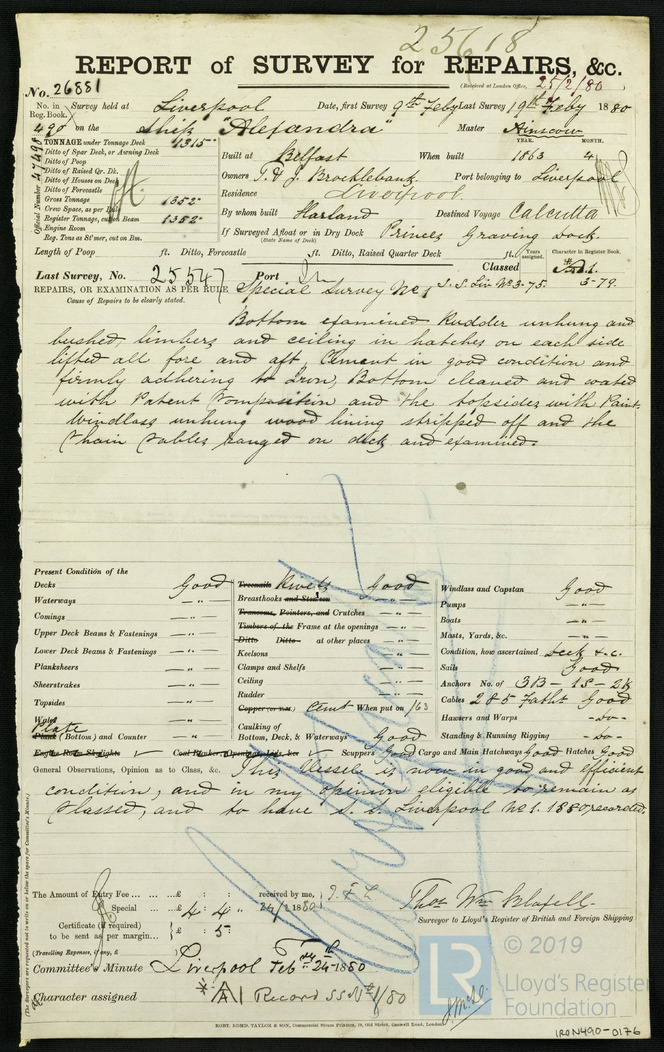 25618
REPORT of SURVEY for REPAIRS, &c.
(Received at London Office, 25/2/80
No. 26881
No. in Reg. Book. Survey held at Liverpool Date, first Survey 9th Feby Last Survey 19th Feby 1880
490 on the Ship "Alexandra" Master Ainscow
TONNAGE under Tonnage Deck 1315
YEAR. MONTH.
Ditto of Spar Deck, or Awning Deck
Built at Belfast When built 1863 4
Ditto of Poop
Ditto of Raised Qr. Dk.
Owners T. & J. Brocklebank Port belonging to Liverpool
Ditto of Houses on Deck
Ditto of Forecastle
Residence Liverpool
Gross Tonnage 1352
Crew Space, as per
By whom built Harland Destined Voyage Calcutta
Register Tonnage, cut on Beam 1352
Engine Room
If Surveyed Afloat or in Dry Dock Princes Graving Dock.
(State Name of Dock)
Reg. Tons as St'mer, cut on Bm.
Official Number 47498
Length of Poop ft. Ditto, Forecastle ft. Ditto, Raised Quarter Deck ft.
Years assigned. Character in Register Book.
Last Survey, No. 25547 Port Classed A.1.
REPAIRS, OR EXAMINATION AS PER RULE Special Survey No 1 S.S. Liv No 3-75. 3-79.
Cause of Repairs to be clearly stated.
Bottom examined Rudder unhung and
bushed, limbers and ceiling in hatches on each side
lifted all fore and aft, Cement in good condition and
firmly adhering to Iron, Bottom cleaned and coated
with Patent Composition and the topsides with Paint.
Windlass unhung wood lining stripped off and the
Chain Cables ranged on deck and examined.
Present Condition of the
Decks Good
Waterways — " —
Comings — " —
Upper Deck Beams & Fastenings — " —
Lower Deck Beams & Fastenings — " —
Planksheers — " —
Sheerstrakes — " —
Topsides — " —
Wales
Plate
Plank (Bottom) and Counter — " —
Engine Room Skylights ✓
Treenails Rivets Good
Breasthooks and Stemson — " —
Transoms, Pointers, and Crutches — " —
Timbers of the Frame at the openings — " —
Ditto Ditto at other places — " —
Keelsons — " —
Clamps and Shelfs — " —
Ceiling — " —
Rudder — " —
Copper (or YM) Cemt When put on /63
Caulking of
Bottom, Deck, & Waterways Good
Coal Bunker, Openings, Lids, &c ✓ Scuppers Good
Windlass and Capstan Good
Pumps — " —
Boats — " —
Masts, Yards, &c. — " —
Condition, how ascertained Deck &c.
Sails Good
Anchors No. of 3B — 1S — 2K
Cables 285 Faths Good
Hawsers and Warps — do —
Standing & Running Rigging — do —
Cargo and Main Hatchways Good Hatches Good
General Observations, Opinion as to Class, &c. This Vessel is now in good and efficient
condition, and in my opinion eligible to remain as
Classed, and to have S.S. Liverpool No 1. 1880, recorded.
(The Surveyors are requested not to write on or below the space for Committee's Minute.)
The Amount of Entry Fee ... ...£ : : received by me,
Special ... ...£ 4 : 4 " 24/2 1880
Certificate (if required) to be sent as per margin... £ : 5
(Travelling Expenses, if any, £ )
Thos Wm Blaxell.
Surveyor to Lloyd's Register of British and Foreign Shipping
Committee's Minute Liverpool Feb 24th 1880
Character assigned *A1 Record SS No 1/80
ROBT. EDMD. TAYLOR & SON, Commercial Steam Printers, 19, Old Street, Goswell Road, London.
LR
© 2019
Lloyd's Register
Foundation
IRON490-0176